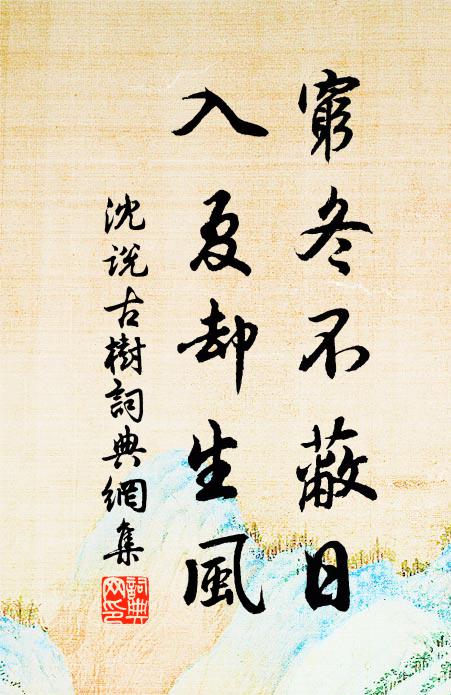 窮冬不蔽日
入夏却生風
沈说古樹詞典網集
詞典網印